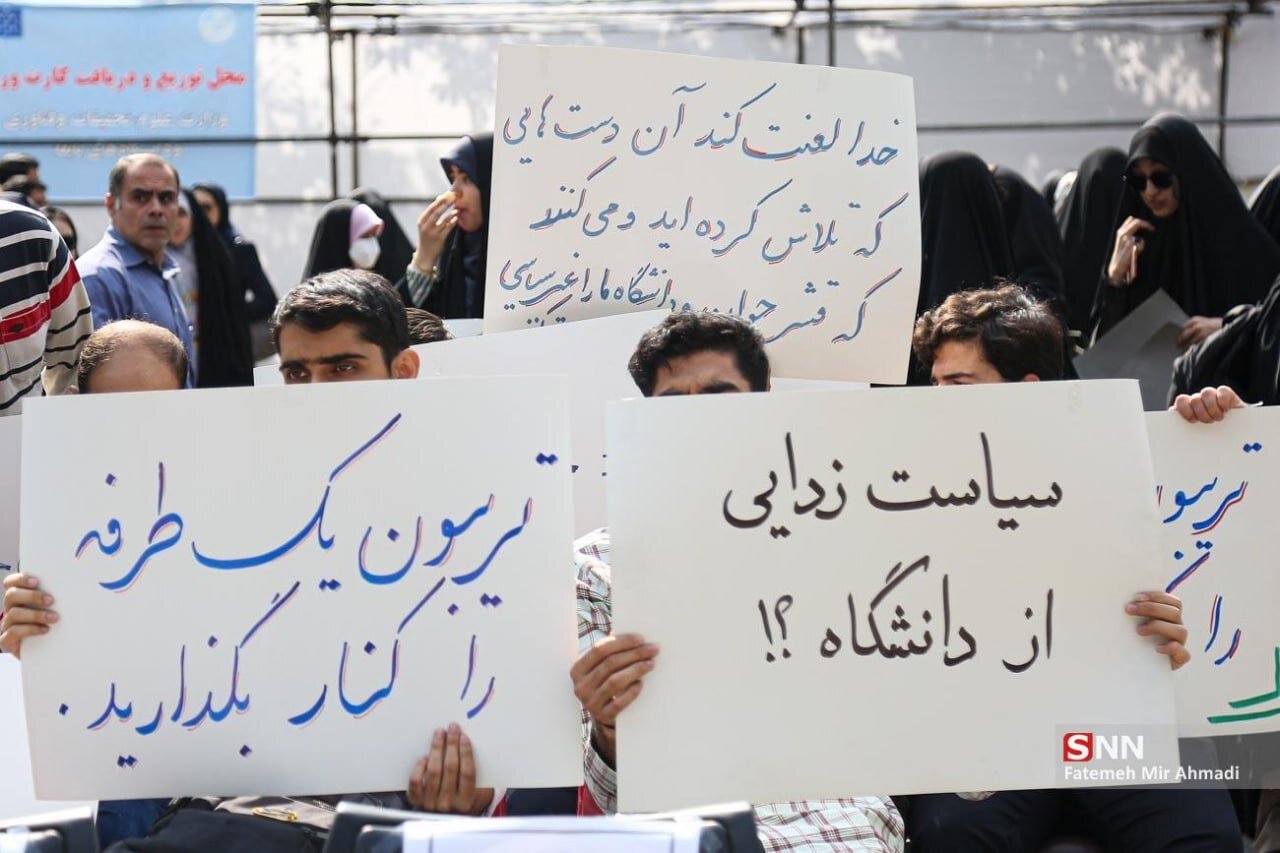 محل توزیع و دریافت کارت ور
وزارت علوم، تحقیقات و فناوری
خدا لعنت کند آن دست‌هایی
که تلاش کرده اید و می کنند
که قشر جوان و دانشگاه ما را غیر سیاسی
تریبون یک طرفه
را کنار بگذارید.
سیاست زدایی
از دانشگاه ؟!
را
SNN
Fatemeh Mir Ahmadi